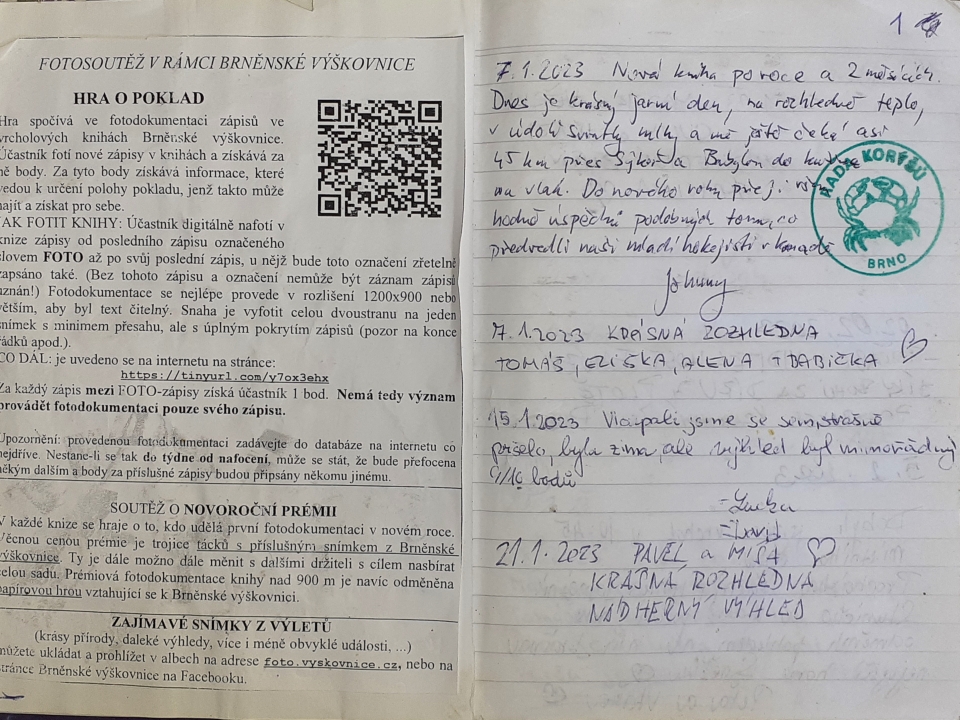 FOTOSOUTĚŽ V RÁMCI BRNĚNSKÉ VÝŠKOVNICE
HRA O POKLAD
Hra spočívá ve fotodokumentaci zápisů ve
vrcholových knihách Brněnské výškovnice.
Účastník fotí nové zápisy v knihách a získává za
ně body. Za tyto body získává informace, které
vedou k určení polohy pokladu, jenž takto může
najít a získat pro sebe.
JAK FOTIT KNIHY: Účastník digitálně nafotí v
knize zápisy od posledního zápisu označeného
slovem FOTO až po svůj poslední zápis, u nějž bude toto označení zřetelně
zapsáno také. (Bez tohoto zápisu a označení nemůže být záznam zápisů
uznán!) Fotodokumentace se nejlépe provede v rozlišení 1200x900 nebo
větším, aby byl text čitelný. Snaha je vyfotit celou dvoustranu na jeden
snímek s minimem přesahu, ale s úplným pokrytím zápisů (pozor na konce
řádků apod.).
CO DÁL: je uvedeno se na internetu na stránce:
https://tinyurl.com/y7ox3ehx
Za každý zápis mezi FOTO-zápisy získá účastník 1 bod. Nemá tedy význam
provádět fotodokumentaci pouze svého zápisu.
Upozornění: provedenou fotodokumentaci zadávejte do databáze na internetu co
nejdříve. Nestane-li se tak do týdne od nafocení, může se stát, že bude přefocena
někým dalším a body za příslušné zápisy budou připsány někomu jinému.
SOUTĚŽ O NOVOROČNÍ PRÉMII
V každé knize se hraje o to, kdo udělá první fotodokumentaci v novém roce.
Věcnou cenou prémie je trojice tácků s příslušným snímkem z Brněnské
výškovnice. Ty je dále možno dále měnit s dalšími držiteli s cílem nasbírat
celou sadu. Prémiová fotodokumentace knihy nad 900 m je navíc odměněna
papírovou hrou vztahující se k Brněnské výškovnici.
ZAJÍMAVÉ SNÍMKY Z VÝLETŮ
(krásy přírody, daleké výhledy, více i méně obvyklé události, ...)
můžete ukládat a prohlížet v albech na adrese foto.vyskovnice.cz, nebo na
stránce Brněnské výškovnice na Facebooku.
1
7.1.2023 Nová kniha po roce a 2 měsících.
Dnes je krásný jarní den, na rozhledně teplo,
v údolí Svratky mlhy a mě ještě čeká asi
45 km přes Sýkoř a Babylon do
na vlak. Do nového roku přeji
hodně úspěchů podobných tomu, co
předvedli naši mladí hokejisti v Kanadě
Johnny
ŘÁD KORÝŠŮ
BRNO
7.1.2023 KRÁSNÁ ROZHLEDNA
TOMÁŠ, ELIŠKA, ALENA + BABIČKA
15.1.2023 Vlapali jsme se sem, strašně
pršelo, byla zima, ale výhled byl mimořádný
9/10 bodů
- Lucka
- David
21.1.2023 PAVEL a MÍŠA
KRÁSNÁ ROZHLEDNA
NÁDHERNÝ VÝHLED